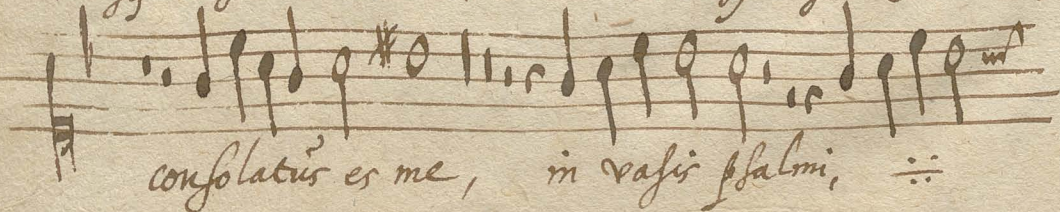 consolatus es me, in vasis psalmi,